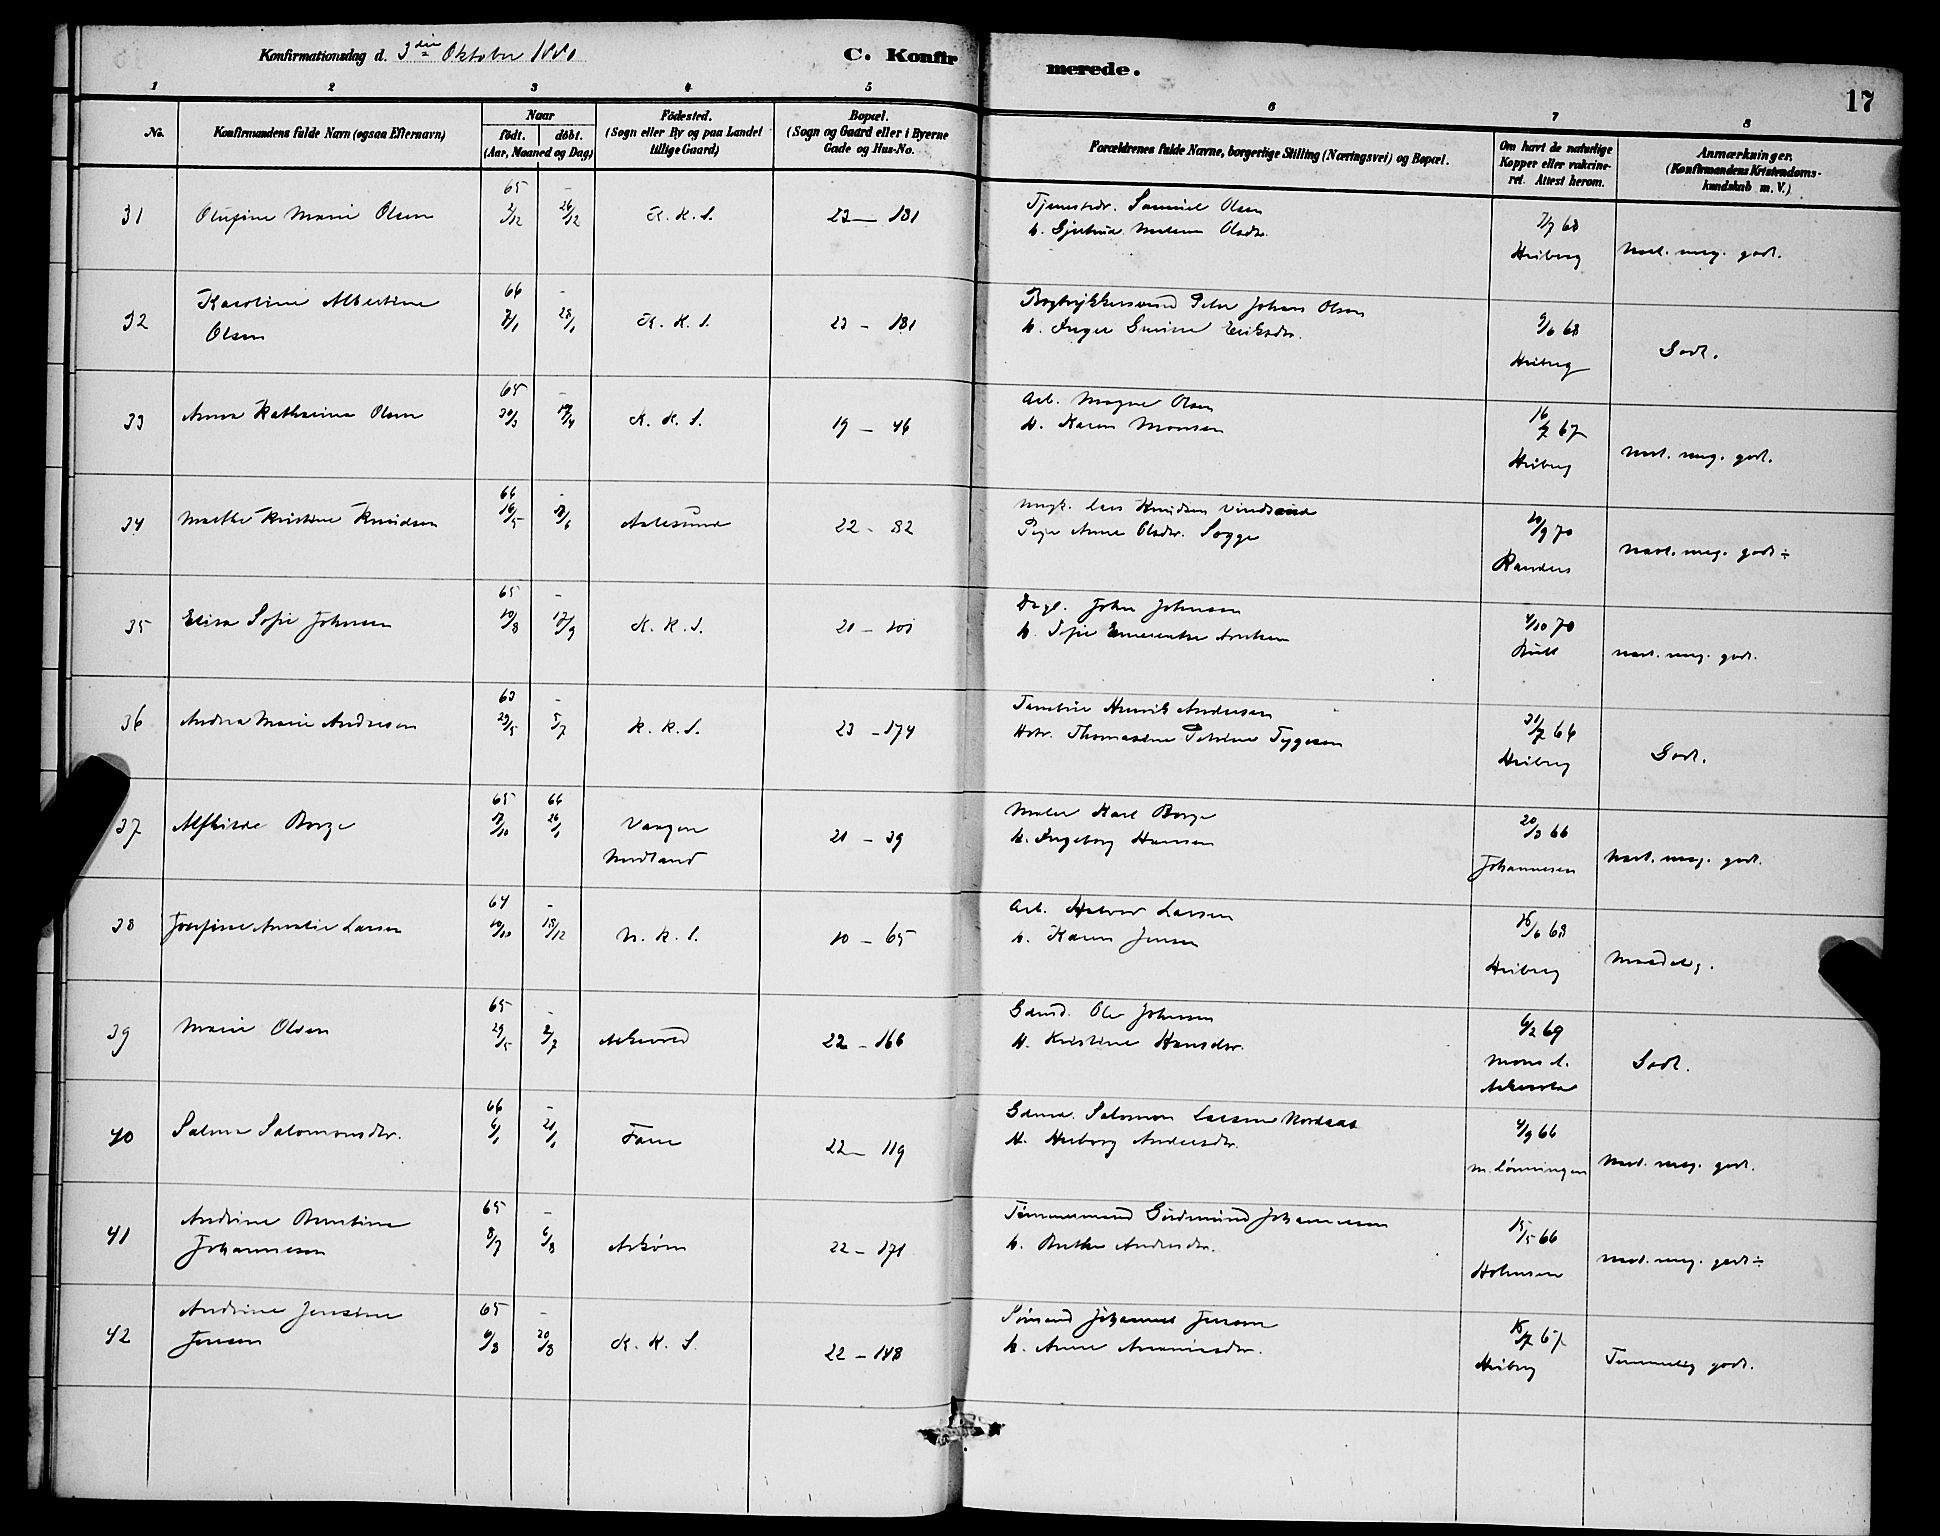 Konfirmationsdag d. 3die Oktober 1880
C. Konfirmerede.
17
1 2 3 4 5 6 7 8
No.
Konfirmandens fulde Navn (ogsaa Efternavn)
Naar
födt. döbt.
(Aar, Maaned og Dag)
Födested.
(Sogn eller By og paa Landet
tillige Gaard)
Bopæl.
(Sogn og Gaard eller i Byerne
Gade og Hus-No.
Forældrenes fulde Navne, borgerlige Stilling (Næringsvei) og Bopæl.
Om havt de naturlige
Kopper eller vakcine-
ret. Attest herom.
Anmærkninger.
(Konfirmandens Kristendoms-
kundskab m. V.)
31 Olufine Marie Olsen 65 2/12 - 26/12 K. K. S. 23 - 181 Tjenestk. Samuel Olsen
H. Gjertrud Olsdtr. 7/7 68 Heiberg Meg. godt.
32 Karoline Albertine
Olsen 66 7/1 - 28/1 K. K. S. 23 - 181 Bogtrykkersvend Peter Johan Olsen
H. Inger Eriksdtr. 9/6 68 Heiberg Godt.
33 Anna Katharina Olsen 65 30/3 - 17/4 K. K. S. 19 - 46 Arb. Mogne Olsen
H. Karen Monsen 16/7 67 Heiberg meg. godt.
34 Marthe Kristine Knudsen 66 16/5 - /6 Aalesund 22 - 82 Ungk. Lars Knudsen
Pige Anne Olsdtr. Sogge 20/9 70 Randers meg. godt ÷
35 Elisa Sofie Johnsen 65 19/8 - 17/9 K. K. S. 21 - 101 Dagl. John Johnsen
H. Sofie 4/10 70 meg. godt.
36 Andrea Marie Andresen 63 29/5 - 5/7 K. K. S. 23 - 174 Henrik Andersen
Hstr. Thomasine Petrine Tygesen 31/7 64 Heiberg Godt.
37 Alfhilde Borge 65 /10 66 26/1 Vaagen
Nordland 21 - 39 Maler Karl Borge
H. Ingeborg Hansen 20/3 66 Johannesen meg. godt.
38 Josefine Amalie Larsen 64 10/10 - 18/12 N. K. S. 10 - 65 Arb. Halvor Larsen
H. Karen Jensen 18/6 68 Heiberg Maadelig.
39 Marie Olsen 65 29/5 - 2/7 Askevold 22 - 166 Gdmd. Ole Johnsen
H. Kristine Hansdtr. 6/2 69 Mons A.
Godt.
40 Salmine Salomonsdtr. 66 6/1 - 21/1 Fane 22 - 119 Gdmd. Salomon Larsen Nordaas
H. Herborg Andersdtr. 4/9 66 M. Lønningen meg. godt.
41 Andrine Berntine
Johannesen 65 8/7 - 6/8 Askøen 22 - 171 Tømmermand Gudmund Johannesen
H. Berthe Andersdtr. 15/5 66 Holmsen meg. godt ÷
42 Andrine Jensine
Jensen 65 6/8 - 20/8 K. K. S. 22 - 148 Sømand Johannes Jensen
H. Anne 15/7 67 Heiberg Temmelig godt.